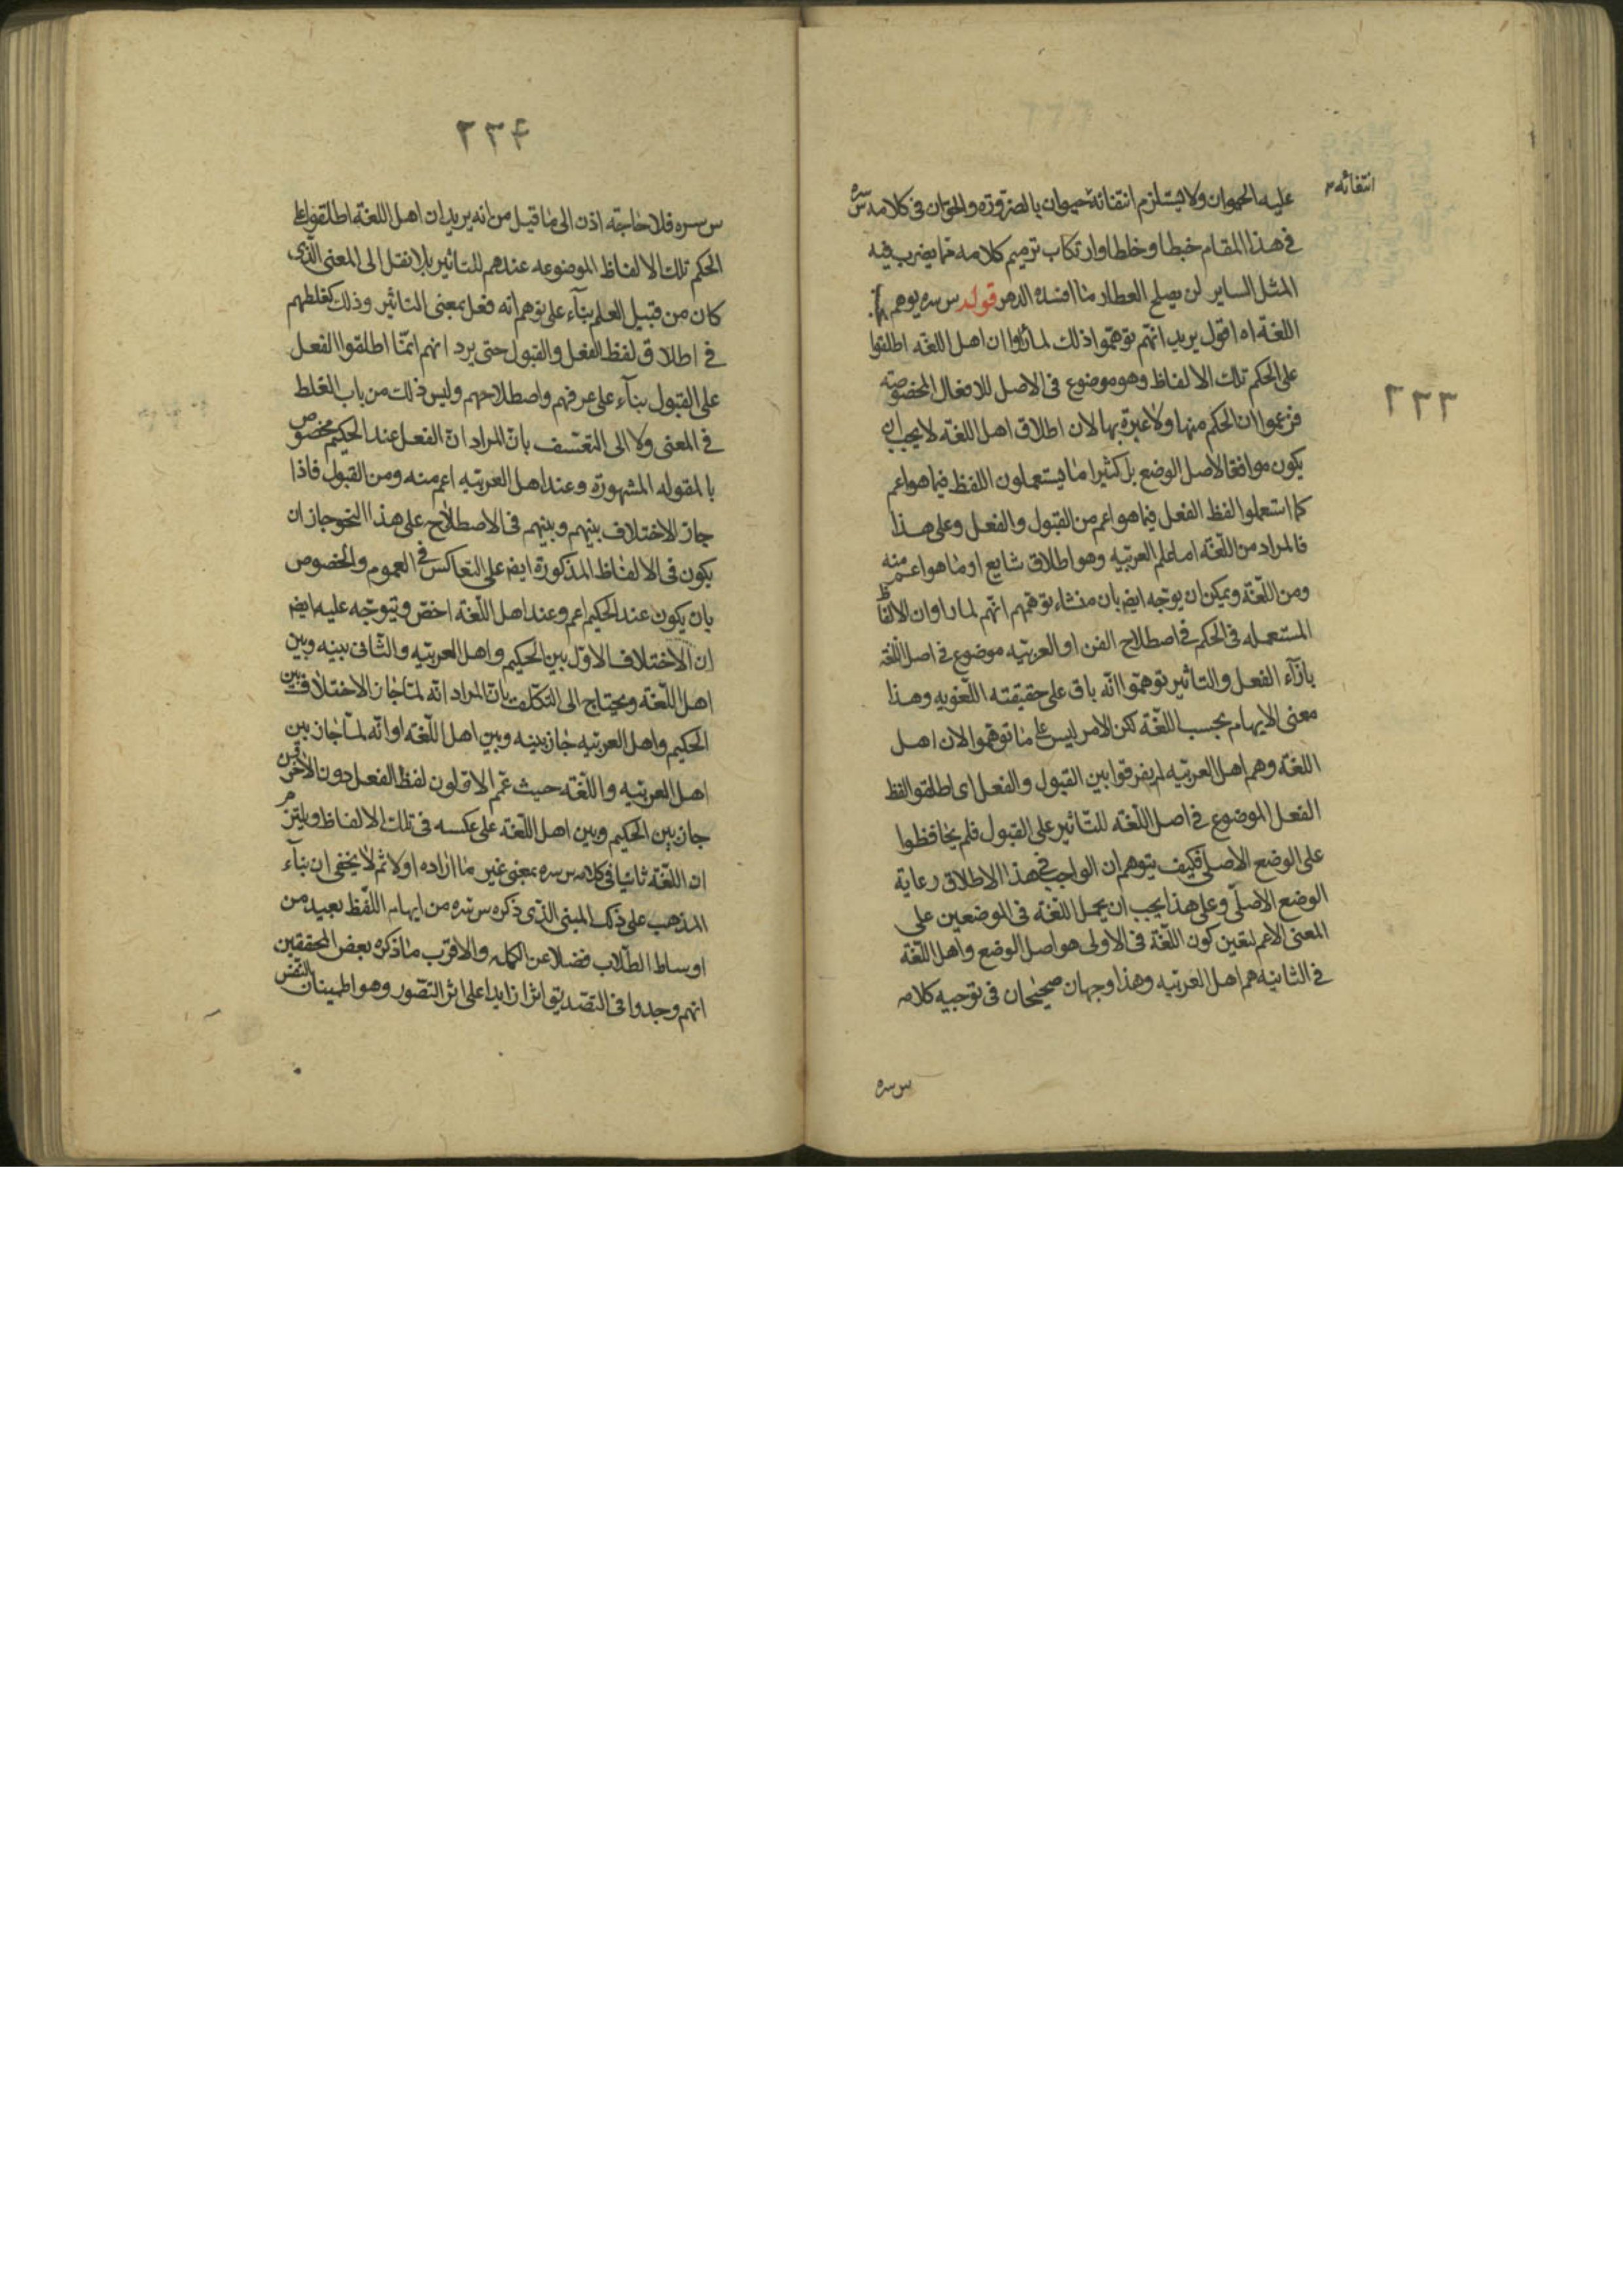 انتفائه
عليه الحيوان ولا يستلزم انتفائه حيوان بالضرورة والحق ان فى كلامه س سره
فى هذا المقام خبطا وخلطا وارتكاب ترميم كلامه مما يضرب فيه
المثل الساير لن يصلح العطار ما افسده الدهر قوله س سره يوهم
اللغة اه اقول يريد انهم توهموا ذلك لما راوا ان اهل اللغة اطلقوا
على الحكم تلك الالفاظ وهو موضوع فى الاصل للافعال المخصوصة
فزعموا ان الحكم منها ولا عبرة بها لان اطلاق اهل اللغة لا يجب ان
يكون موافقا لاصل الوضع بل كثيرا ما يستعملون اللفظ فيما هو اعم
كما استعملوا لفظ الفعل فيما هو اعم من القبول والفعل وعلى هذا
فالمراد من اللغة اما علم العربيه وهو اطلاق شايع او ما هو اعم منه
ومن اللغة ويمكن ان يوجه ايضا بان منشاء توهمهم انهم لما راوا ان الالفاظ
المستعمله فى الحكم فى اصطلاح الفن او العربيه موضوع فى اصل اللغة
بازآء الفعل والتاثير توهموا انه باق على حقيقته اللغويه وهذا
معنى الايهام بحسب اللغة لكن الامر ليس على ما توهموا لان اهل
اللغة وهم اهل العربيه لم يفرقوا بين القبول والفعل اى اطلقوا لفظ
الفعل الموضوع فى اصل اللغة للتاثير على القبول فلم يحافظوا
على الوضع الاصلى فكيف يتوهم ان الواجب فى هذا الاطلاق رعاية
الوضع الاصلى وعلى هذا يجب ان يحمل اللغة فى الموضعين على
المعنى الاعم لتعين كون اللغة فى الاولى هو اصل الوضع واهل اللغة
فى الثانيه هم اهل العربيه وهذا وجهان صحيحان فى توجيه كلامه
س سره
٢٣٣
٢٣۴
س سره فلا حاجة اذن الى ما قيل من انه يريد ان اهل اللغة اطلقوا على
الحكم تلك الالفاظ الموضوعه عندهم للتاثير بلا نقل الى المعنى الذى
كان من قبيل العلم بنآء على توهم انه فعل بمعنى التاثير وذلك كغلطهم
فى اطلاق لفظ الفعل والقبول حتى يرد انهم انما اطلقوا الفعل
على القبول بنآء على عرفهم واصطلاحهم وليس ذلك من باب الغلط
فى المعنى ولا الى التعسف بان المراد ان الفعل عند الحكيم مخصوص
بالمقوله المشهورة وعند اهل العربيه اعم منه ومن القبول فاذا
جاز الاختلاف بينهم وبينهم فى الاصطلاح على هذا النحو جاز ان
يكون فى الالفاظ المذكورة ايضا على التعاكس فى العموم والخصوص
بان يكون عند الحكيم اعم وعند اهل اللغة اخص ويتوجه عليه ايضا
ان الاختلاف الاول بين الحكيم واهل العربيه والثانى بينه وبين
اهل اللغة ويحتاج الى التكلف بان المراد انه لما جاز الاختلاف بين
الحكيم واهل العربيه جاز بينه وبين اهل اللغة او انه لما جاز بين
اهل العربيه واللغة حيث عمم الاولون لفظ الفعل دون الآخرين
جاز بين الحكيم وبين اهل اللغة على عكسه فى تلك الالفاظ ويلتزم
ان اللغة ثانيا فى كلامه س سره بمعنى غير ما اراده اولا ثم لا يخفى ان بنآء
المذهب على ذلك المبنى الذى ذكره س سره من ايهام اللفظ بعيد من
اوساط الطلاب فضلا عن الكمله والاقرب ما ذكره بعض المحققين
انهم وجدوا فى التصديق اثرا زايدا على اثر التصور وهو اطمينان النفس